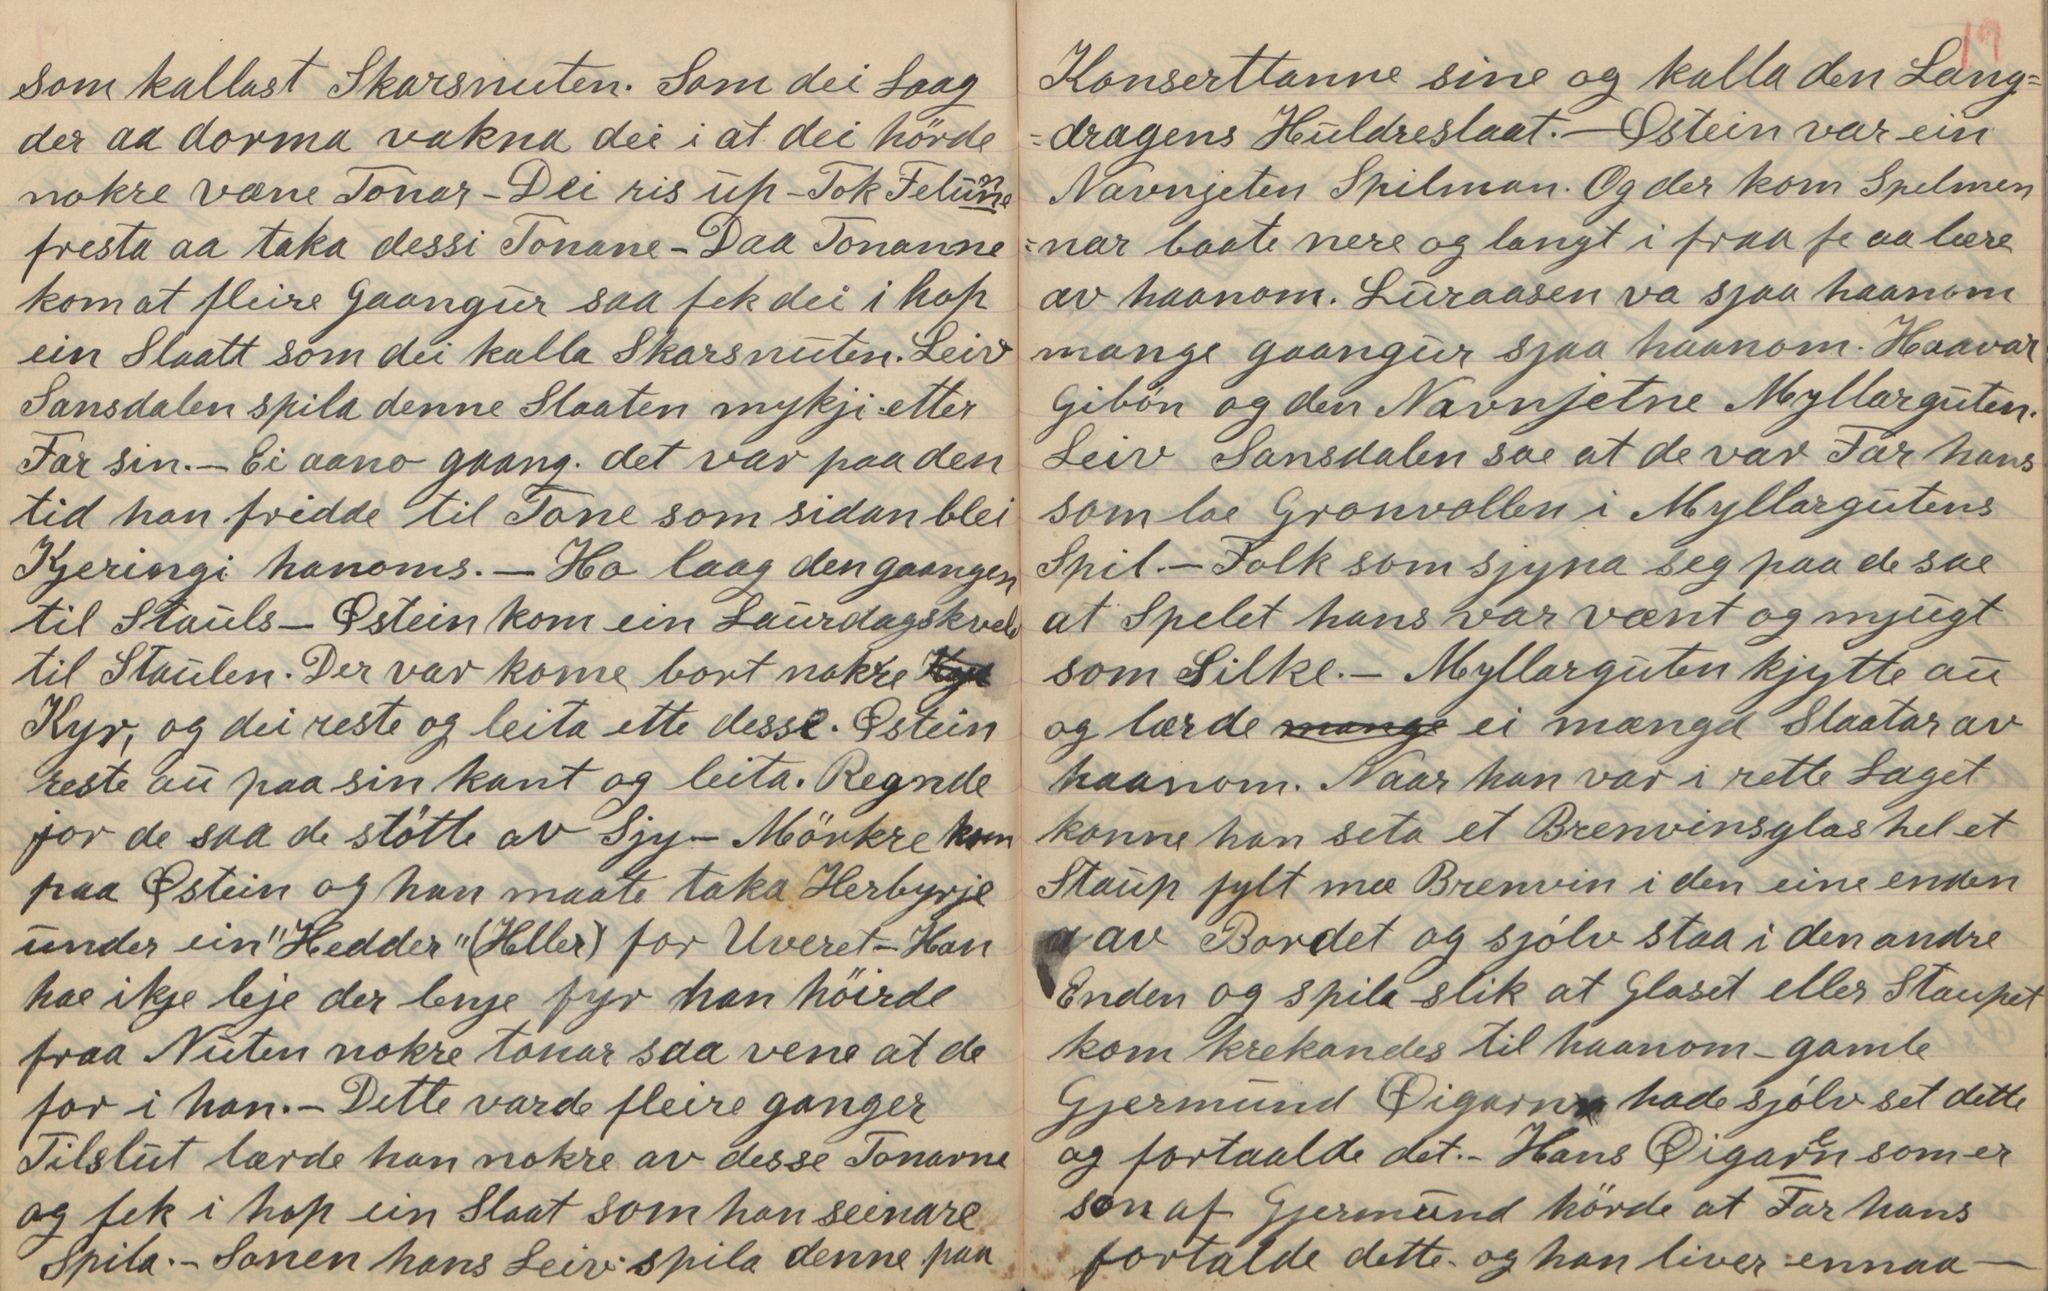 som kallast Skarsnuten. Som dei Laag
der aa dorma vakna dei i at dei hörde
nokre væne Tonar – Dei ris up – Tok Felunne
fresta aa taka dessi Tonane – Daa Tonanne
kom at fleire Gaangur saa fek dei i hop
ein Slaatt som dei kalla Skarsnuten. Leiv
Sansdalen spila denne Slaaten mykji etter
Far sin. – Ei aano gaang. det var paa den
tid han fridde til Tone som sidan blei
Kjeringi hanoms. – Ho laag den gaangen
til Stauls – Østein kom ein Laurdagskveld
til Staulen. Der var kome bort nokre
Kyr, og dei reste og leita ette desse. Østein
reste au paa sin kant og leita. Regnde
jor de saa de stötte av Sjy – Mörkre kom
paa Østein og han maate taka Herbyrje
under ein "Hedder" (Heller) for Uveret – Han
hae ikje leje der lenje fyr han höirde
fraa Nuten nokre tonar saa vene at de
for i han. – Dette varde fleire ganger
Tilslut lærde han nokre av desse Tonarne
og fek i hop ein Slaat som han seinare
Spila. – Sonen hans Leiv spila denne paa
19
Konserttanne sine og kalla den Lang=
=dragens Huldreslaat. – Østein var ein
Navnjeten Spilman. Og der kom Spelmen
=nar baate nere og langt i fraa fe aa lære
av haanom. Luraasen va sjaa haanom
mange gaangur sjaa haanom. Haavar
Gibön og den Navnjetne Myllarguten.
Leiv Sansdalen sae at de var Far hans
som lae Gronvollen i Myllargutens
Spil. – Folk som sjyna seg paa de sae
at Spelet hans var vænt og mjugt
som Silke. – Myllarguten kjytte au
og lærde mange ei mængd Slaatar av
haanom. Naar han var i rette Laget
konne han seta et Brenvinsglas hel et
Staup fylt mæ Brenvin i den eine enden
av Bordet og sjólv staa i den andre
Enden og spila slik at Glaset eller Staupet
kom krekandes til haanom – gamle
Gjermund Øigarn hade sjólv set dette
og fortaalde det. – Hans Øigaren som er
son af Gjermund hörde at Far hans
fortalde dette – og han liver ennaa –